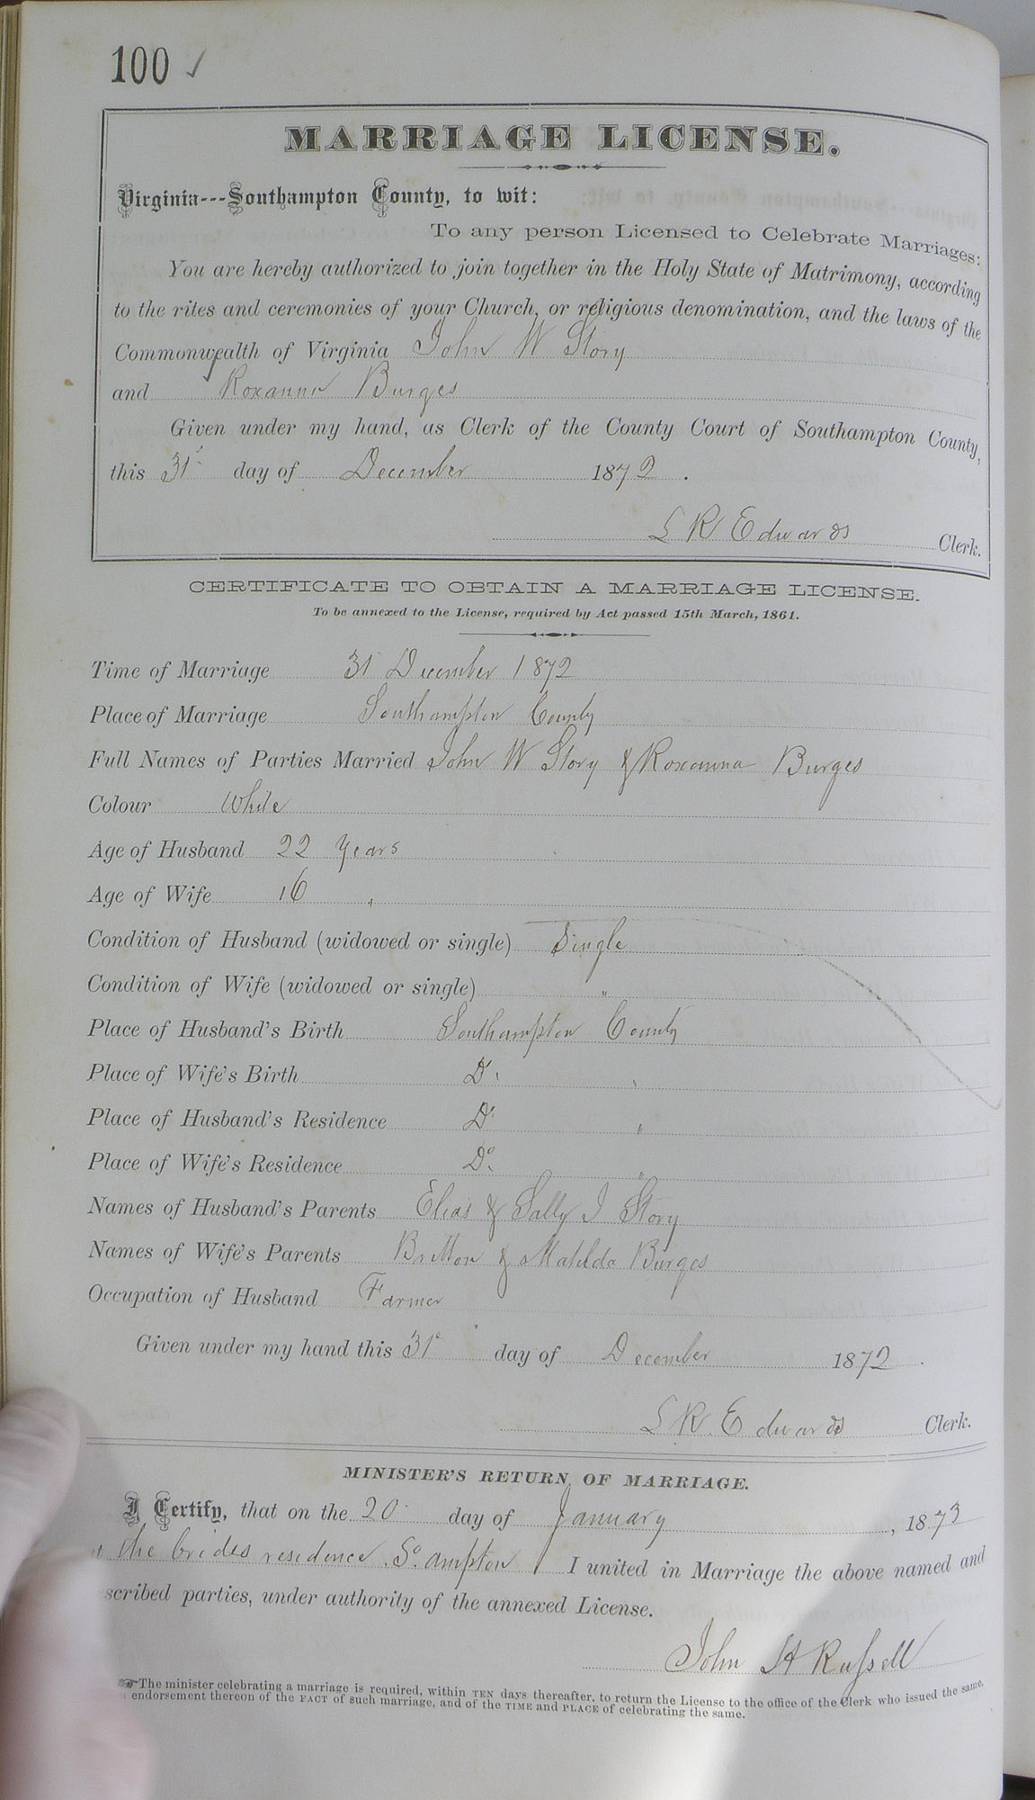 100 ✓
MARRIAGE LICENSE.
Virginia---Southampton County, to wit:
To any person Licensed to Celebrate Marriages:
You are hereby authorized to join together in the Holy State of Matrimony, according
to the rites and ceremonies of your Church, or religious denomination, and the laws of the
Commonwealth of Virginia John W Story
and Roxanna Burges
Given under my hand, as Clerk of the County Court of Southampton County,
this 31 day of December 1872.
L R Edwards Clerk.
CERTIFICATE TO OBTAIN A MARRIAGE LICENSE.
To be annexed to the License, required by Act passed 15th March, 1861.
Time of Marriage 31 December 1872
Place of Marriage Southampton County
Full Names of Parties Married John W Story & Roxanna Burges
Colour White
Age of Husband 22 Years
Age of Wife 16 "
Condition of Husband (widowed or single) Single
Condition of Wife (widowed or single) "
Place of Husband's Birth Southampton County
Place of Wife's Birth Do "
Place of Husband's Residence Do "
Place of Wife's Residence Do "
Names of Husband's Parents Elias & Sally J Story
Names of Wife's Parents Britton & Matilda Burges
Occupation of Husband Farmer
Given under my hand this 31 day of December 1872
L R Edwards Clerk.
MINISTER'S RETURN OF MARRIAGE.
I Certify, that on the 20 day of January, 1873
the brides residence So ampton, I united in Marriage the above named and
scribed parties, under authority of the annexed License.
John H Russell
☞The minister celebrating a marriage is required, within TEN days thereafter, to return the License to the office of the Clerk who issued the same,
endorsement thereon of the FACT of such marriage, and of the TIME and PLACE of celebrating the same.